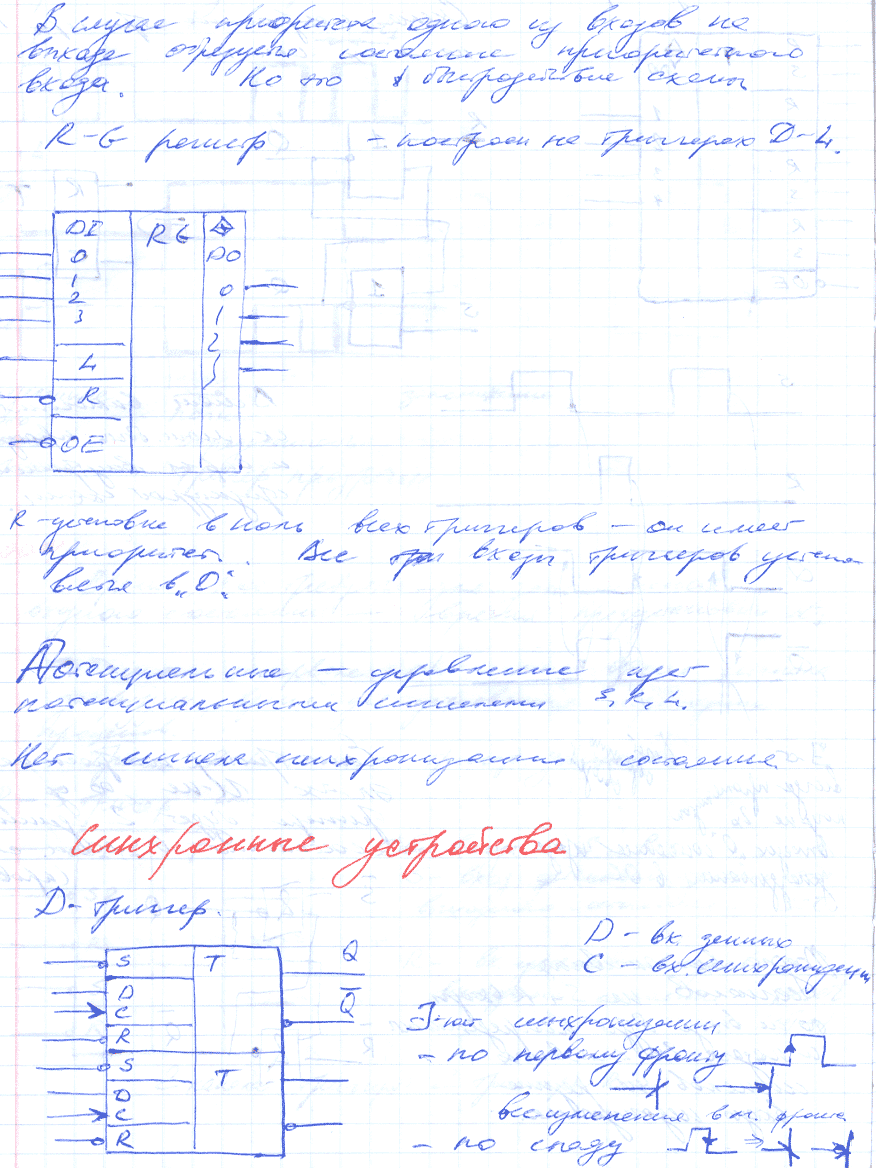 В случае приоритета одного из входов на
выходе образуется состояние приоритетного
входа. Но это быстродействие схемы
R-G регистр - построен на триггерах D-L.
DI RG
0 DO
1 0
2 1
3 2
L 3
R
OE
R - установка в ноль всех триггеров - он имеет
приоритет. Все входы триггеров устана
вл в "0".
Потенциальные - управление идет
потенциальными сигналами S, R, L.
Нет сигнала синхронизации состояние
Синхронные устройства
D-триггер.
S T Q
D
C Q̅
R
S T
D
C
R
D - вх. данных
C - вх. синхронизации
синхронизации
- по первому фронту
все изменения в м. фронта
- по спаду